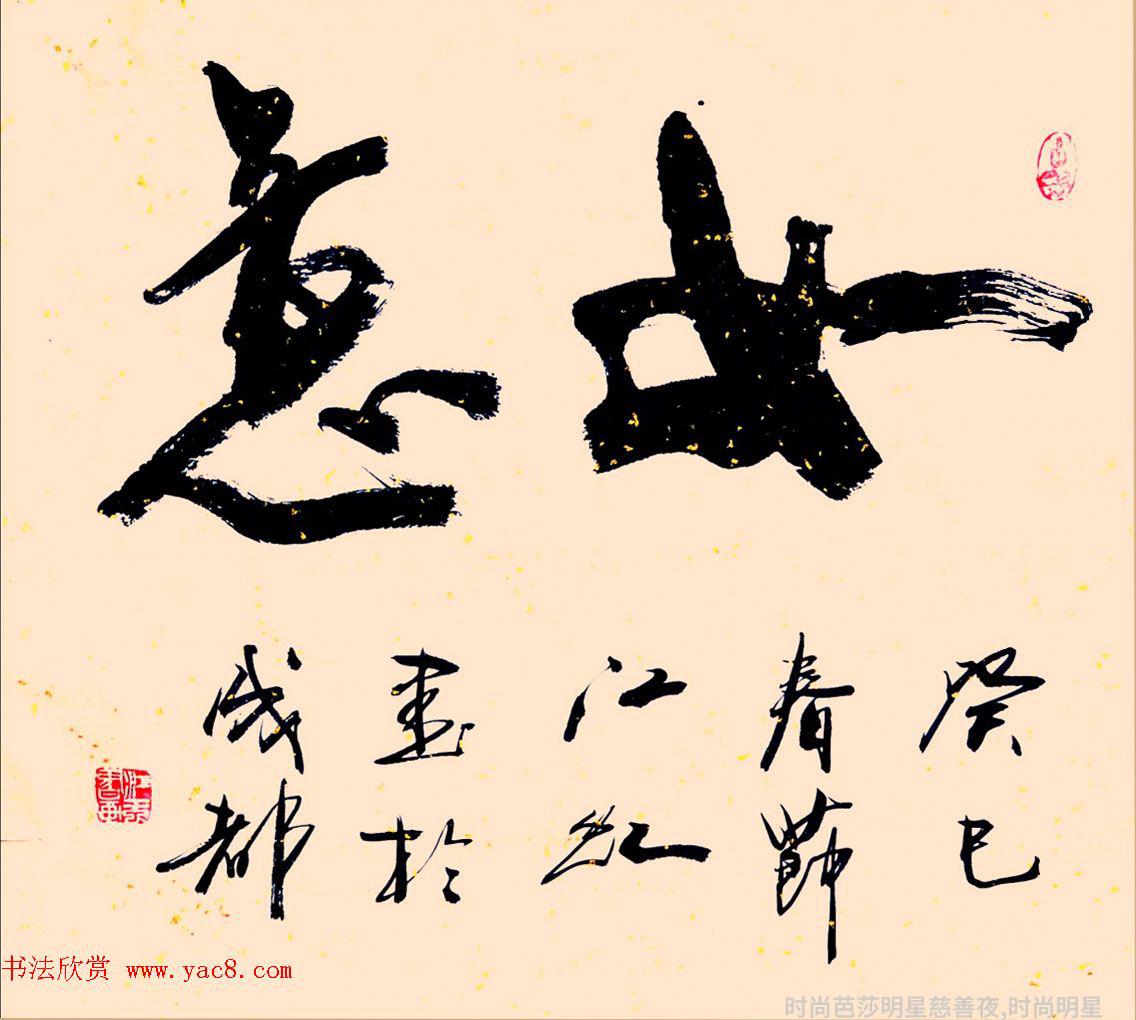 如意
癸巳
春節
江红
書於
成都
书法欣赏 www.yac8.com
时尚芭莎明星慈善夜,时尚明星